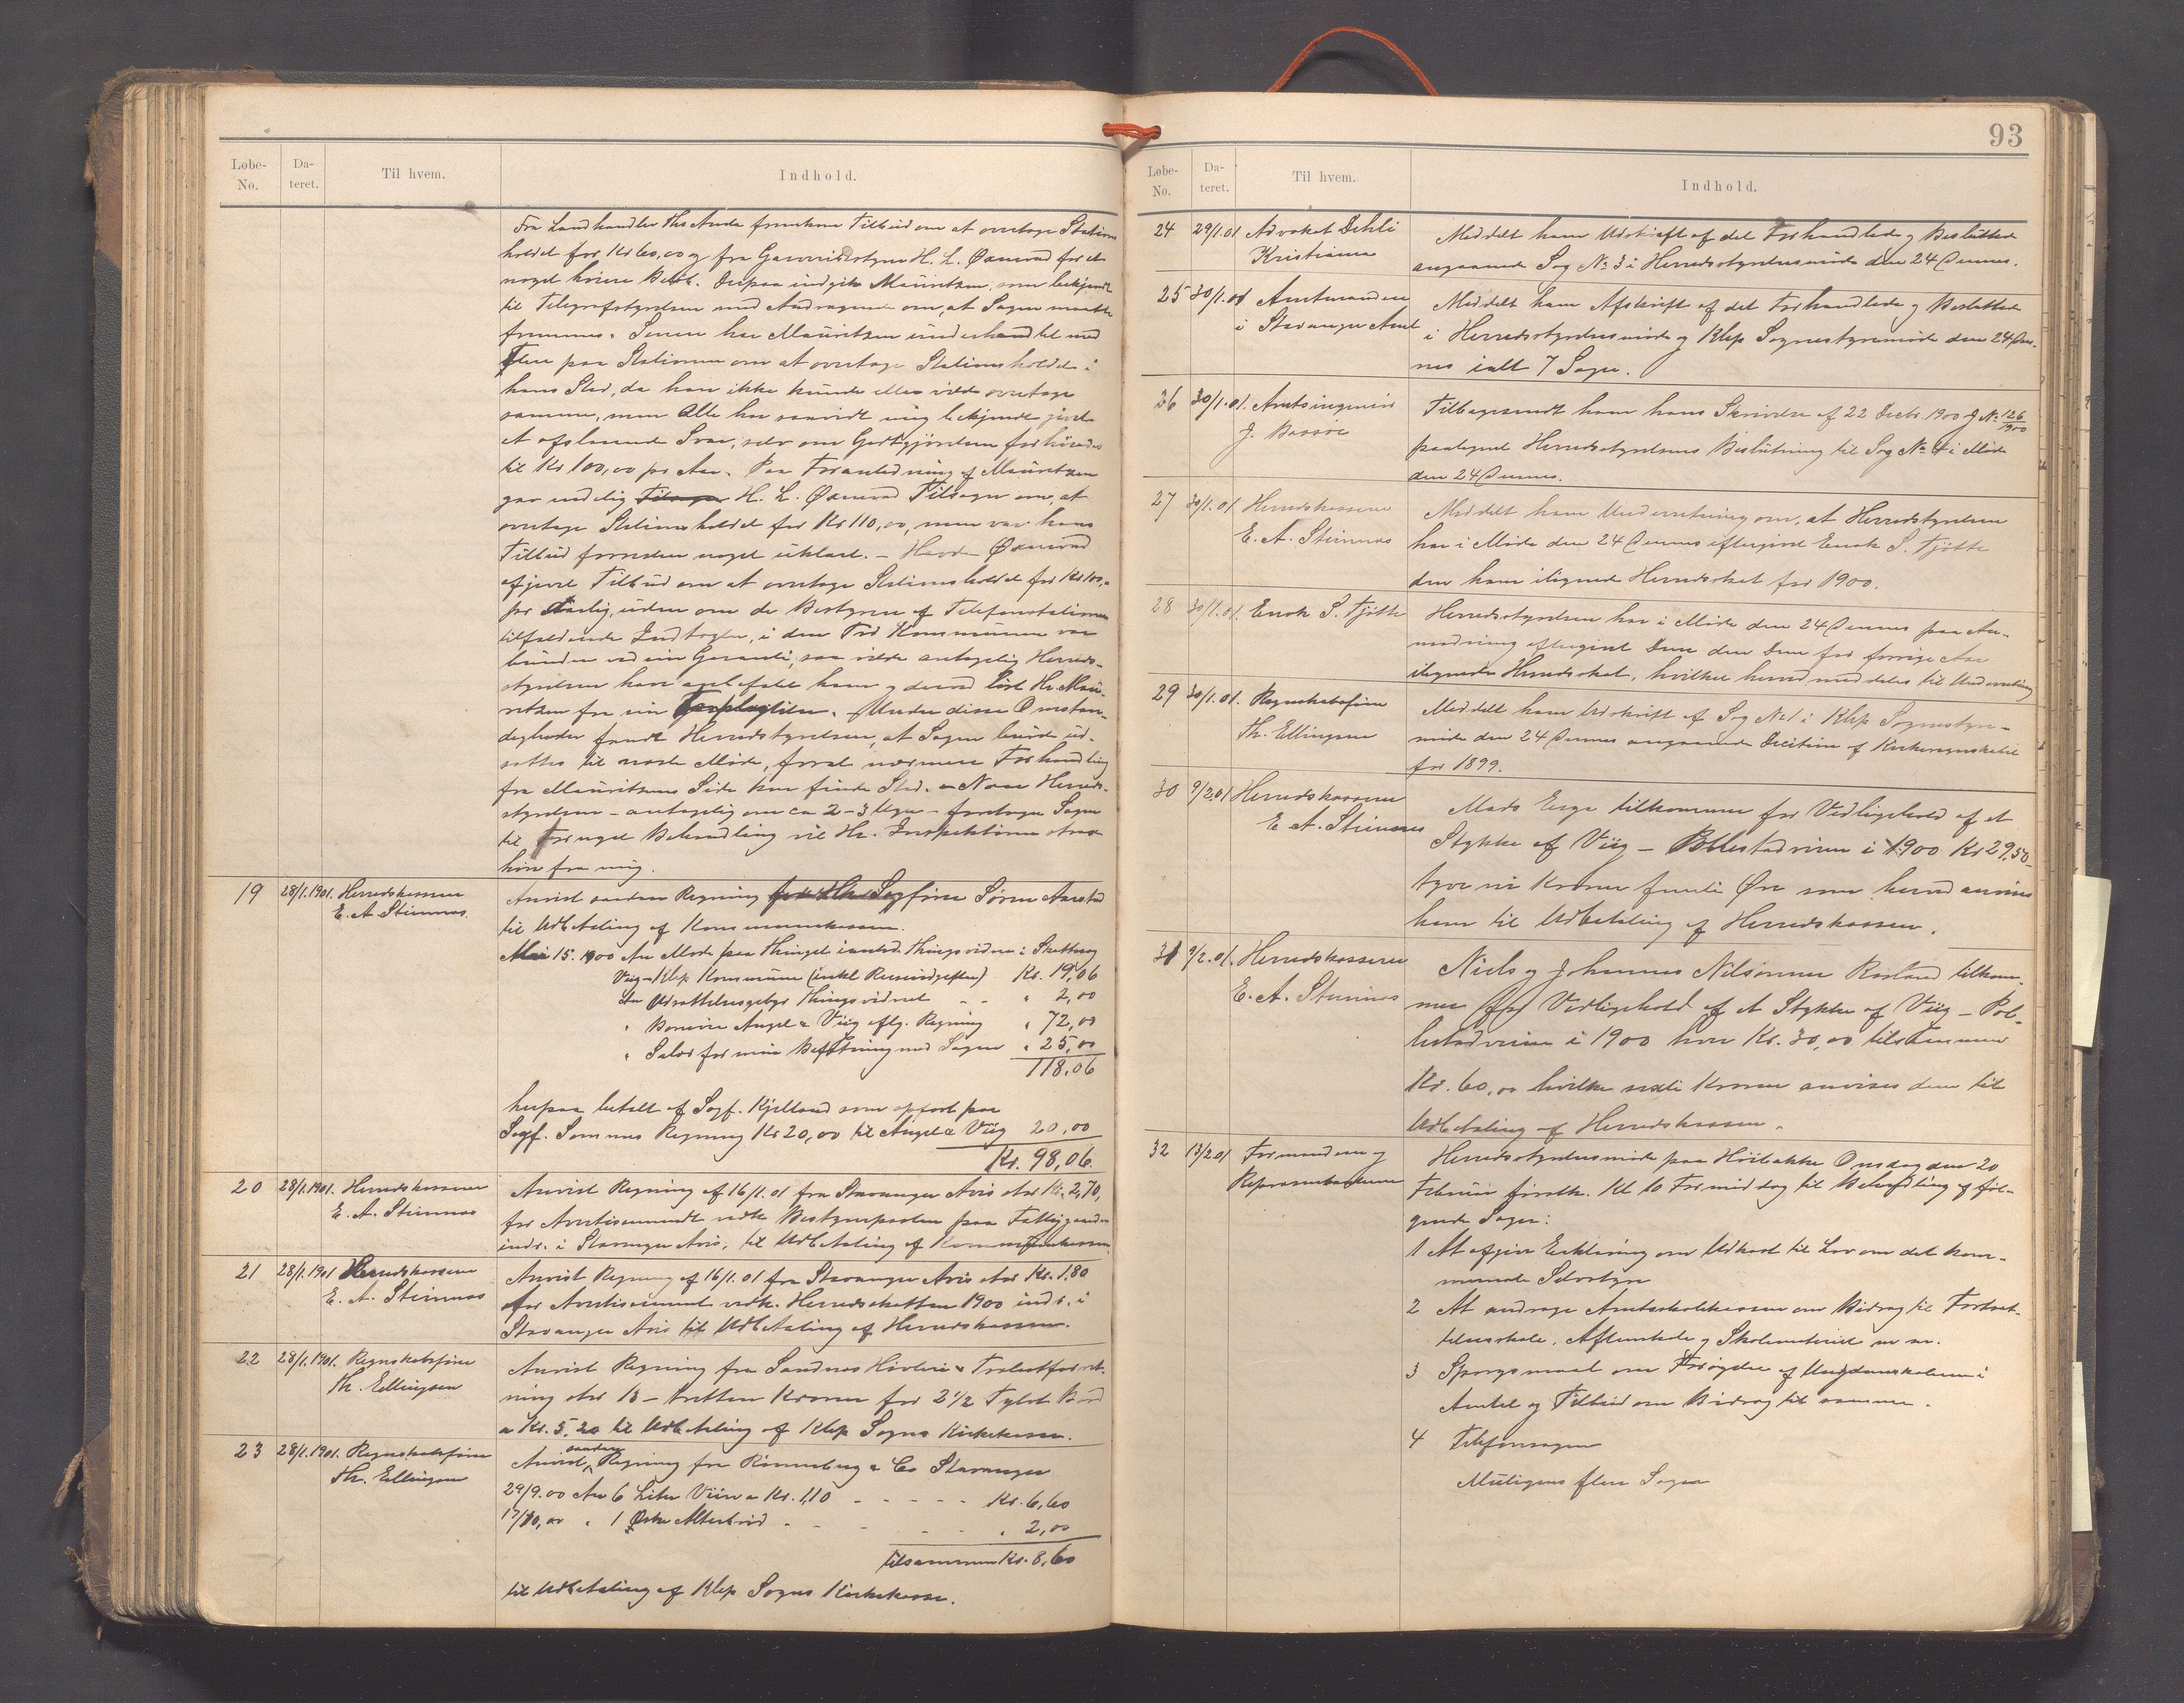 93
Løbe-No. Da-teret. Til hvem. Indhold.
Fra Landhandler Ths Anda fremkom Tilbud om at overtage Stations
holdet for Kr 60,00 og fra Garveribestyrer H. L. Øxnevad for et
noget høiere Beløb. Derpaa indgik Mauritzen, som bekjendt
til Telegrafstyrelsen med Andragende om, at Sagen maatte
fremmes. Senere har Mauritzen underhandlet med
Flere paa Stationen om at overtage Stationsholdet i
hans Sted, da han ikke kunde eller vilde overtage
samme, men Alle har saavidt mig bekjendt givet
et afslaaende Svar, selv om Godtgjørelsen forhøiedes
til Kr 100,00 pr Aar. Paa Foranledning af Mauritzen
gav endelig Tilsagn H. L. Øxnevad Tilsagn om, at
overtage Stationsholdet for Kr 110,00, men var hans
Tilbud forresten noget uklart. - Havde Øxnevad
afgivet Tilbud om at overtage Stationsholdet for Kr 100,00
pr Aarlig, uden om de Bestyreren af Telefonstationen
tilfaldende Indtægter, i den Tid Kommunen var
bunden ved sin Garanti, saa vilde antagelig Herreds-
styrelsen have anbefalet ham og derved løst Hr. Mau-
ritzen fra sin Forpligtelse. Under disse Omstæn-
digheder fandt Herredstyrelsen, at Sagen burde ud-
sættes til næste Møde, forat nærmere Forhandling
fra Mauritzens Side kan finde Sted. - Naar Herreds-
styrelsen - antagelig om ca 2-3 Uger - foretager Sagen
til fornyet Behandling vil Hr. Inspektøren atter
høre fra mig.
19 28/1.1901. Herredskasserer E. A. Steinnæs. Anvist saadan Regning fra Hr. Sagfører Sören Aarstad
til Udbetaling af Kommunekassen.
Mai 15. 1900 An Møde paa Thinget i anled. Thingsvidne i Skattesag
Viig-Klep Kommune (inkl Reiseudgifter) Kr. 19,06
An Udsættelsesgebyr Thingsvidnet - - " 2,00
" Benevir Angel & Viig eflg. Regning " 72,00
" Salær for min Befatning med Sagen " 25,00
118,06
herpaa betalt af Sagf. Kjelland som opført paa
Sagf. Sømmes Regning Kr 20,00 til Angel & Viig 20,00
Kr. 98,06.
20 28/1.1901. Herredskasserer E. A. Steinnæs Anvist Regning af 16/1.01 fra Stavanger Avis stor Kr. 2,70,
for Avertissement vedk. Bestyrerposten paa Fattiggaarden
inds. i Stavanger Avis, til Udbetaling af Kommunekassen.
21 28/1.1901 Herredskasserer E. A. Steinnæs Anvist Regning af 16/1.01 fra Stavanger Avis stor Kr. 1,80
for Avertissement vedk. Herredsskatten 1900 inds. i
Stavanger Avis til Udbetaling af Herredskassen.
22 28/1.1901. Regnskabsfører Th. Ellingsen Anvist Regning fra Sandnæs Høvleri & Trælastforret-
ning stor 13 - tretten Kroner for 2 1/2 Tylvt Bord
a Kr. 5.20 til Udbetaling af Klep Sogns Kirkekasse.
23 28/1.1901. Regnskabsfører Th. Ellingsen Anvist saadan Regning fra Rönneberg & Co Stavanger
29/9.00 An 6 Liter Viin a Kr. 1,10 - - - - - Kr. 6,60
17/10,00 " 1 Æske Alterbrød - - - - - " 2,00
tilsammen Kr. 8,60
til Udbetaling af Klep Sogns Kirkekasse.
Løbe-No. Da-teret. Til hvem. Indhold.
24 29/1.01 Advokat Dehli Kristiania Meddelt ham Udskrift af det Forhandlede og Besluttede
angaaende Sag No 3 i Herredsstyrelsesmøde den 24 Dennes.
25 30/1.01 Amtmanden i Stavanger Amt Meddelt ham Afskrift af det Forhandlede og Besluttede
i Herredsstyrelsesmøde og Klep Sognestyremøde den 24 Den-
nes ialt 7 Sager.
26 30/1.01. Amtsingeniør J. Bassøe Tilbagesendt ham hans Skrivelse af 22 Decbr. 1900 J No 126/1900
paategnet Herredsstyrelsens Beslutning til Sag No 4 i Møde
den 24 Dennes.
27 30/1.01 Herredskasserer E. A. Steinnæs Meddelt ham Underretning om, at Herredstyrelsen
har i Møde den 24 Dennes eftergivet Enok S. Tjötta
den ham ilignede Herredsskat for 1900.
28 30/1.01. Enok S. Tjötta Herredsstyrelsen har i Møde den 24 Dennes paa An-
modning eftergivet Dem den Dem for forrige Aar
ilignede Herredsskat, hvilket herved meddeles til Underretning
29 30/1.01. Regnskabsfører Th. Ellingsen Meddelt ham Udskrift af Sag No 1 i Klep Sognestyre-
møde den 24 Dennes angaaende Decition af Kirkeregnskabet
for 1899.
30 9/2.01 Herredskasserer E. A. Steinnæs Mads Erge tilkommer for Vedligehold af et
Stykke af Viig - Bollestadveien i 1900 Kr 29,50-
tyve ni Kroner femti Øre som herved anvises
ham til Udbetaling af Herredskassen.
31 9/2.01. Herredskasserer E. A. Steinnæs Niels og Johannes Nilsønner Rosland tilkom-
mer for Vedligehold af et Stykke af Viig - Bol-
lestadveien i 1900 hver Kr. 30,00 tilsammen
Kr. 60,00 hvilke sexti Kroner anvises dem til
Udbetaling af Herredskassen.
32 13/2.01 Formændene og Repræsentanterne Herredsstyrelsesmøde paa Höilakke Onsdag den 20
Februar førstk. Kl 10 Formiddag til Behandling af føl-
gende Sager:
1 At afgive Erklæring om Udkast til Lov om det kom-
munale Selvstyre
2 At andrage Amtsskolekassen om Bidrag til Fortsæt-
telsesskole, Aftenskole og Skolemateriel m m.
3 Spørgsmaal om Forøgelse af Ungdomsskolerne i
Amtet og Tilbud om Bidrag til samme.
4 Telefonsagen
Muligens flere Sager